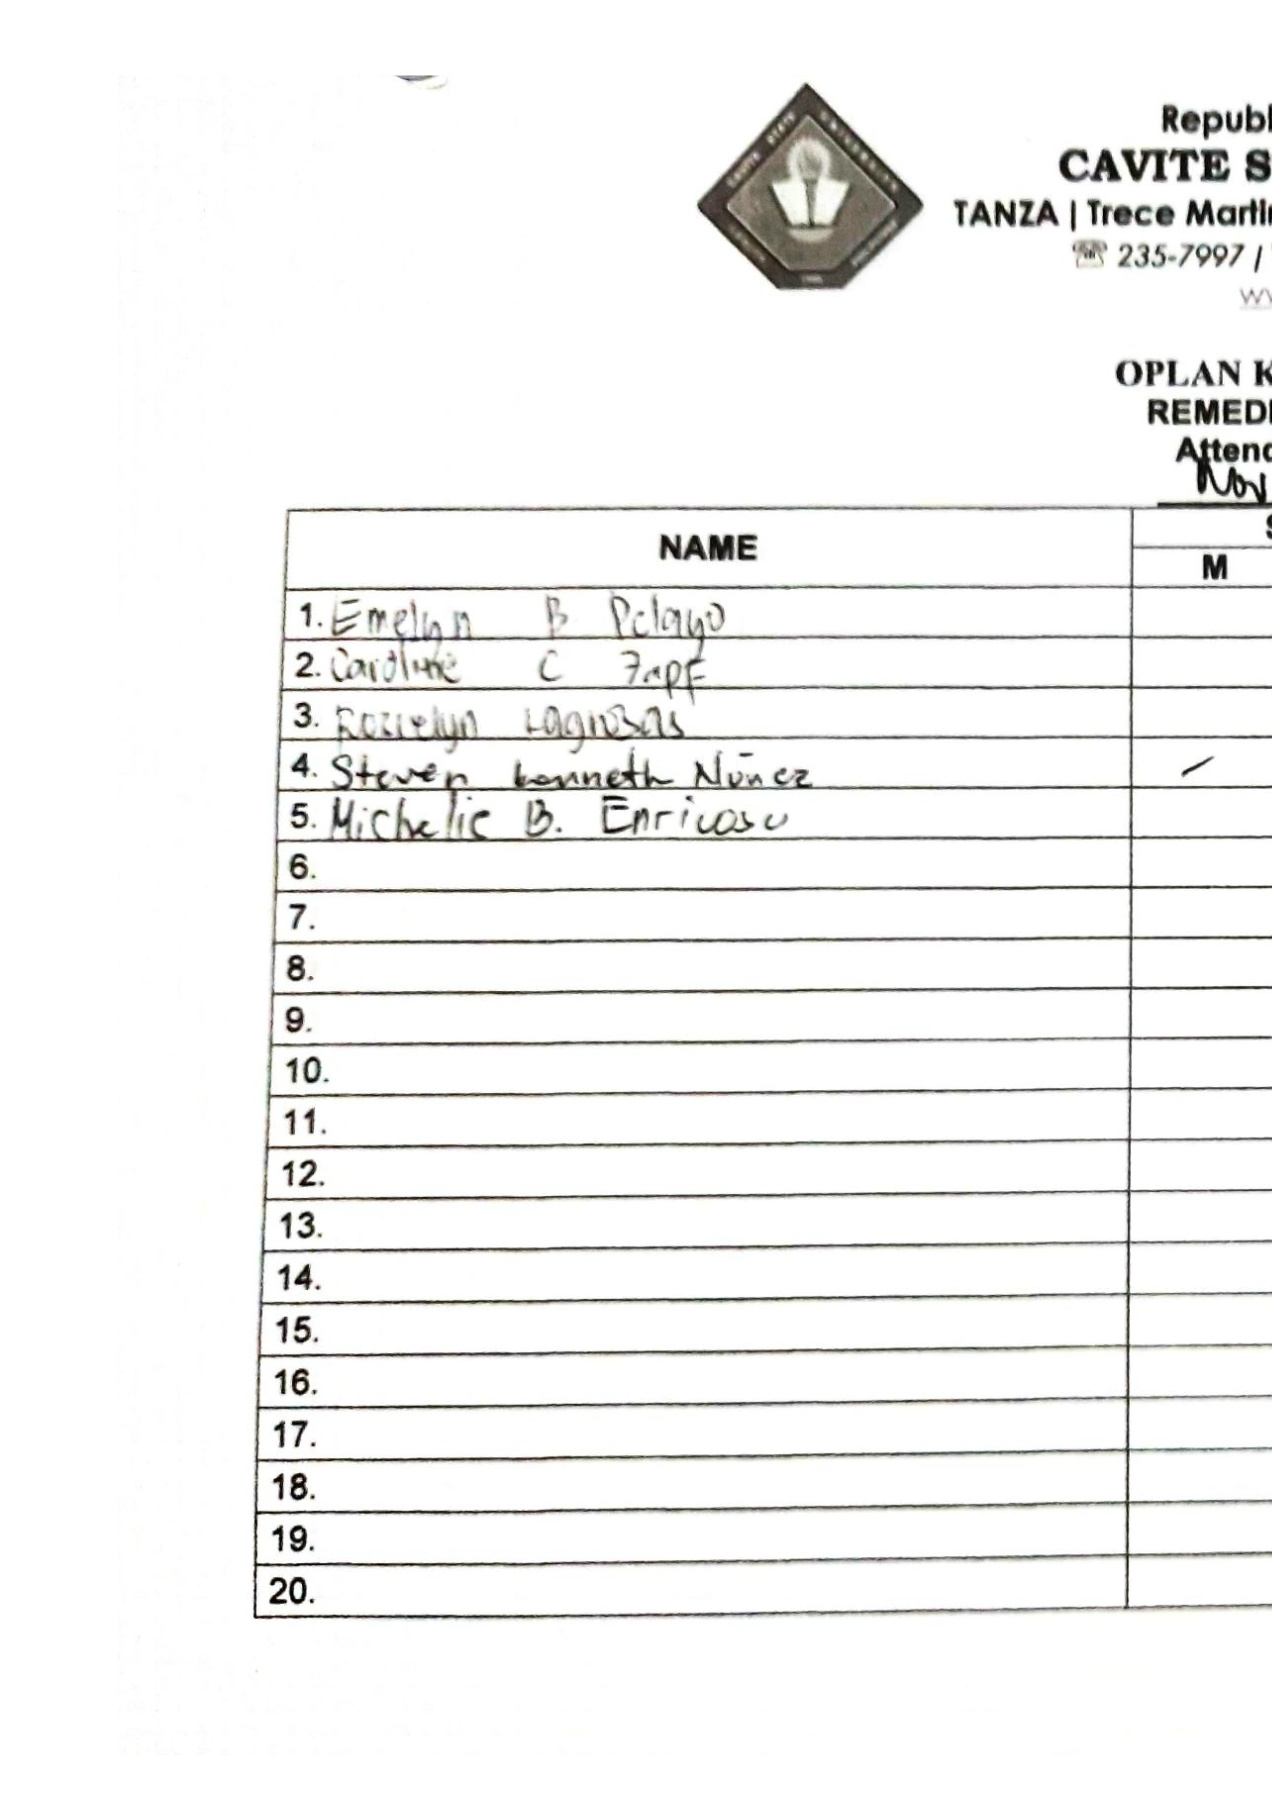 Republ
CAVITE S
TANZA | Trece Martir
☏ 235-7997 |
OPLAN K
REMEDI
Attend
Nov
NAME
M
1. Emelyn B Pelayo
2. Caroline C
3. Rozielyn
4. Steven kenneth Nuñez
5. Michelle B. Enricoso
6.
7.
8.
9.
10.
11.
12.
13.
14.
15.
16.
17.
18.
19.
20.